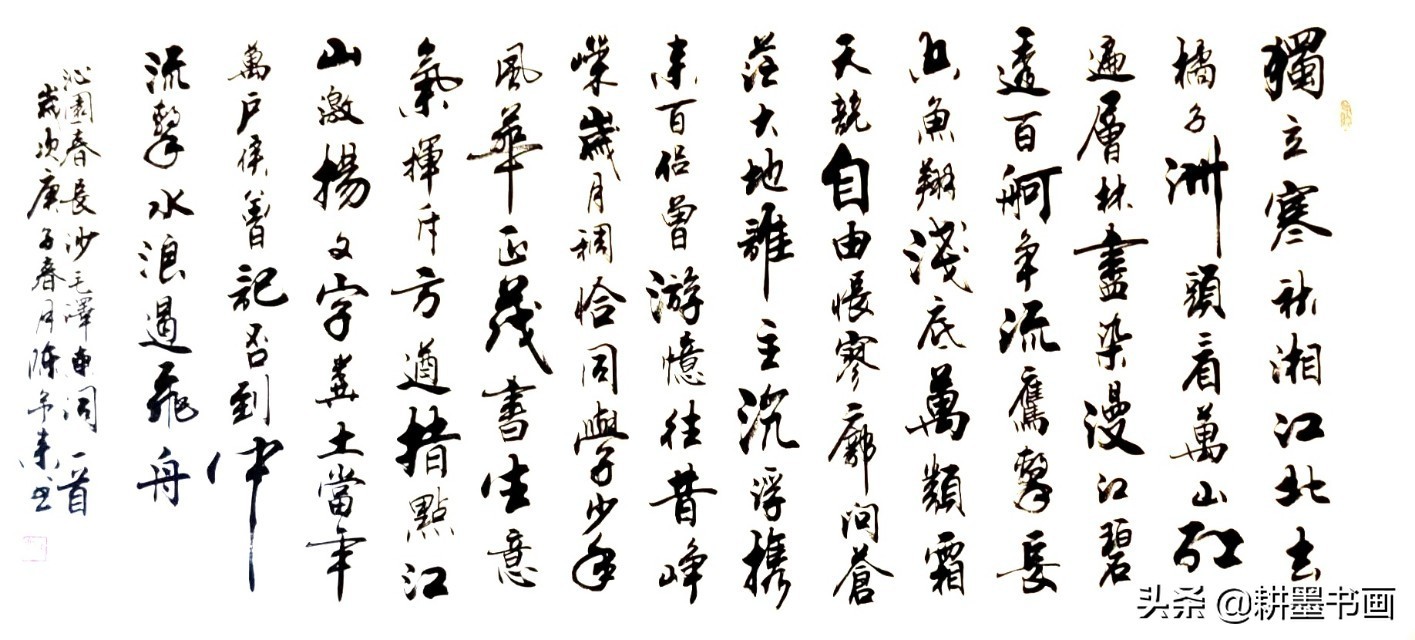 獨立寒秋湘江北去
橘子洲頭看萬山紅
遍層林盡染漫江碧
透百舸争流鷹擊長
空魚翔淺底萬類霜
天競自由悵寥廓問蒼
茫大地誰主沉浮携
来百侣曾游憶往昔峥
嶸歲月稠恰同學少年
風華正茂書生意
氣揮斥方遒指點江
山激揚文字糞土當年
萬户侯曾記否到中
流擊水浪遏飛舟
沁園春長沙毛澤東詞一首
歲次庚子春月陳来书
头条 @耕墨书画